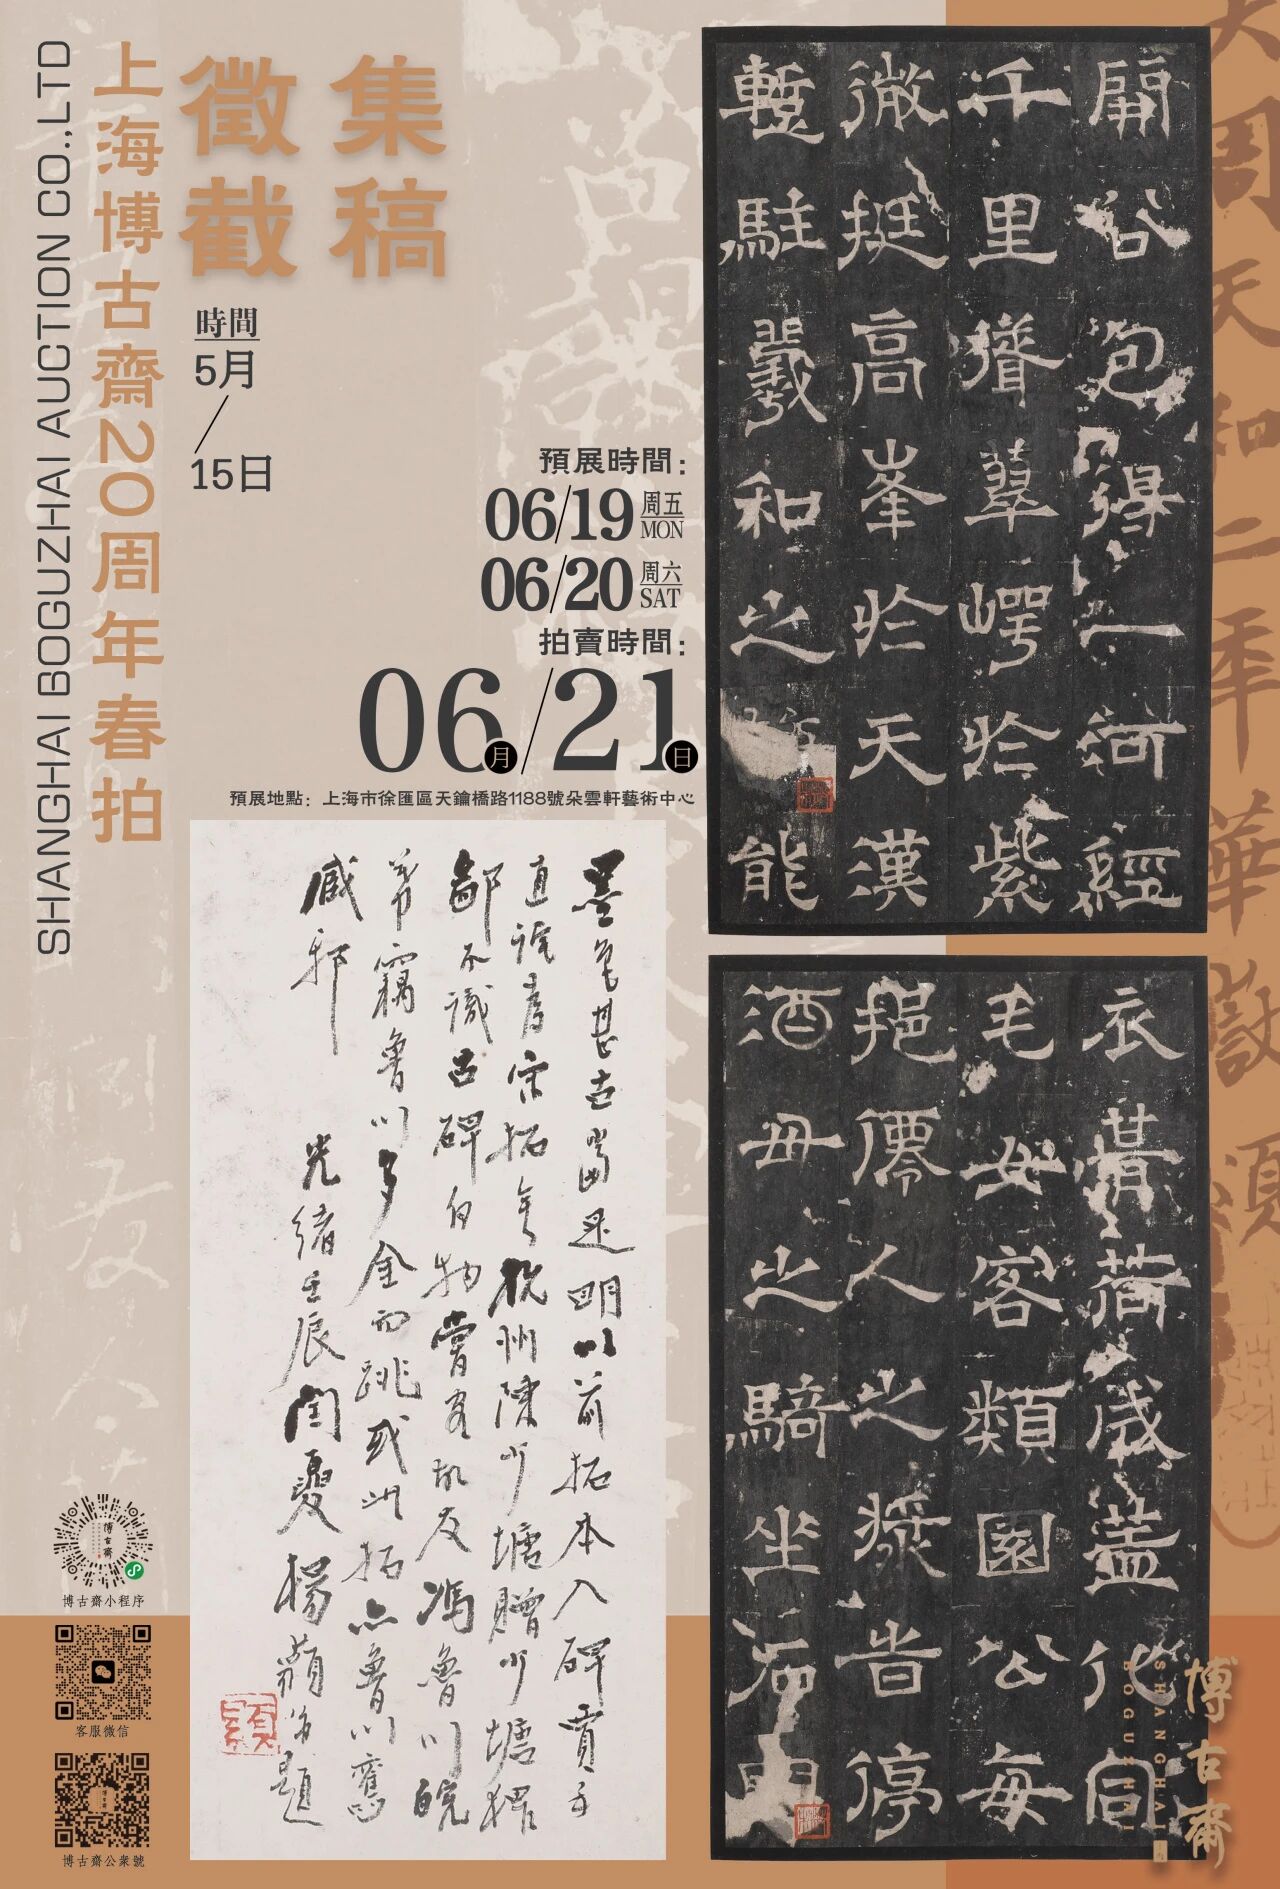 上海博古齋20周年春拍
SHANGHAI BOGUZHAI AUCTION CO.,LTD
徵集
截稿
時間
5月
15日
預展時間：
06/19 周五 MON
06/20 周六 SAT
拍賣時間：
06月/21日
預展地點：上海市徐匯區天鑰橋路1188號朵雲軒藝術中心
大周天和二年華嶽頌
開谷包得一河經
千里聳翠崿於紫
微挺高峯於天漢
蹔駐羲和之能
衣荷蓋
毛女客類園公每
挹僊人之漿昔停
酒母之騎坐石門
墨色甚古當是明以前拓本入碑賈手
直詫為宋拓矣杭州陳少塘贈少塘猥
鄙不識古碑嘗客故友馮魯川皖
竊魯川多金而跳或此拓亦魯川舊
藏邪 光緒壬辰閏夏楊題
博古齋
博古齋小程序
客服微信
博古齋
博古齋公衆號
博古齋
SHANGHAI
BOGUZHAI